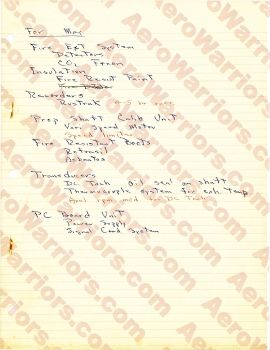 For Mar
Fire Ext System
Detectors
CO2 From
Insulation
Fire Resist Paint
Recorders
Rustrak
Prop Shaft Calib Unit
Vari Speed Motor
Speed limiter
Fire Resistant Boots
Refrasil
Asbestos
Transducers
DC Tach Oil seal on shaft
Thermocouple system for exh. Temp
rpm mod. for DC Tach
PC Board Unit
Power Supply
Signal Cond System
AeroWarriors.com